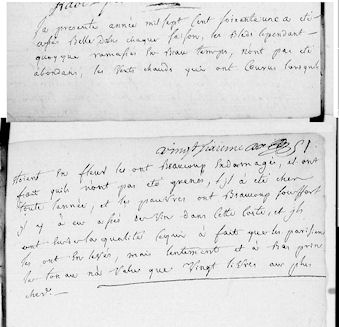 La presente année mil sept cent soixante une a eté
assés Belle Dans chaque saison, les Bleds cependant
quoyque ramassés En Beau temps, n'ont pas eté
abondans, les vents chauds qui ont Courus lorsqu'ils
étoient En fleur les ont Beaucoup Endomagés, et ont
fait quils n'ont pas eté grenés, il a eté cher
toute l'année, et les pauvres ont Beaucoup souffert
il y a eu assés de vin dans cette Coste, et
ont la qualité à fait que les parisiens
les ont Enlevés, mais lentement et à Bas prix
le tonneau n'a value que Vingt livres au plus
cher.